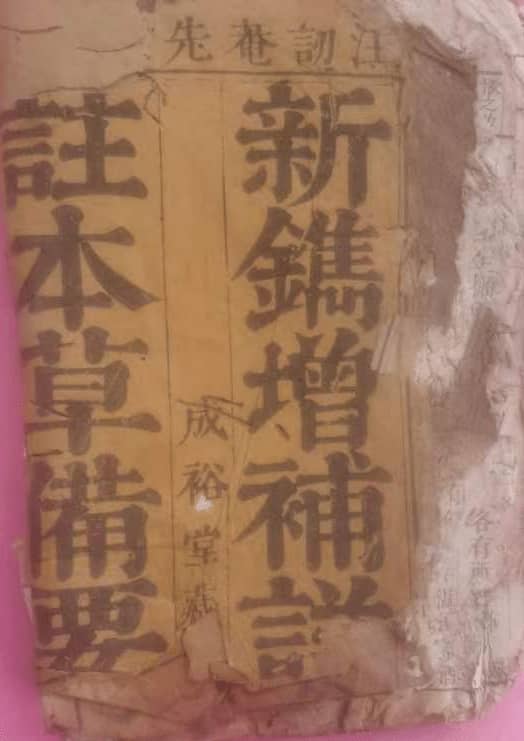 汪訒菴先
新鐫增補詳
成裕堂藏
註本草備要
各有